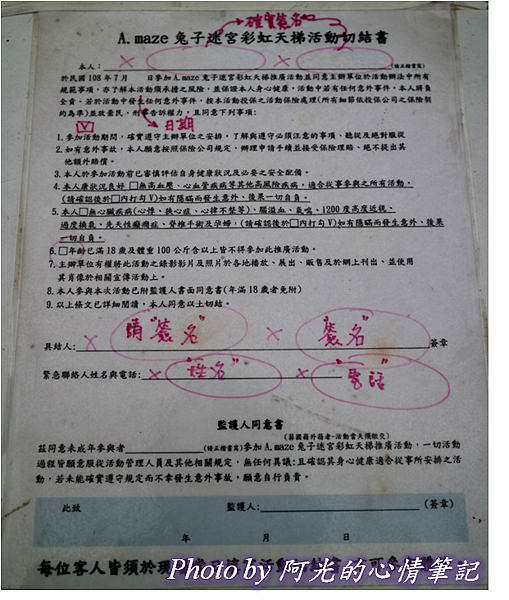 確實簽名
A.maze 兔子迷宮彩虹天梯活動切結書
本人: (請正楷書寫)
於民國 108 年 7 月 日參加 A.maze 兔子迷宮彩虹天梯推廣活動並同意主辦單位於活動辦法中所有
規範事項,亦了解本活動須承擔之風險,並保證本人身心健康,活動中若有任何意外事件,本人將負
全責。若於活動中發生任何意外事件,按本活動投保之活動保險處理(所有細節依投保公司之保險契
約為準)並放棄民、刑事告訴權力,且同意下列事項:
V
日期
1.參加活動期間,確實遵守主辦單位之安排,了解與遵守必須注意的事項、聽從及絕對服從
2.如有意外事故,本人願意按照保險公司規定,辦理申請手續並接受保險理賠、絕不提出其
他額外賠償。
3.本人於參加活動前已審慎評估自身健康狀況及必要之安全配備。
4.本人康狀況良好□無高血壓、心血管疾病等其他高風險疾病,適合從事參與之所有活動,
(請確認後於□內打勾 V)如有隱瞞而發生意外、後果一切自負。
5.本人□無心臟疾病(心悸、狹心症、心律不整等)、腦溢血、氣喘、1200 度高度近視、
過度換氣、先天性癲癇症、脊椎手術及孕婦,(請確認後於□內打勾 V)如有隱瞞而發生意外、後果
一切自負。
6.□年齡已滿 18 歲及體重 100 公斤含以上皆不得參加此推廣活動。
7.主辦單位有權將此活動之錄影影片及照片於各地播放、展出、販售及於網上刊出、並使用
其肖像於相關宣傳活動上。
8.本人參與本次活動已附監護人書面同意書(年滿 18 歲者免附)
9.以上條文已詳細閱讀,本人同意以上切結。
請"簽名" "簽名"
具結人: 簽章
緊急聯絡人姓名與電話: "姓名" "電話"
監護人同意書
(菲國籍外籍者-活動當天須繳交)
茲同意未成年參與者 (請正楷書寫)參加 A.maze 兔子迷宮彩虹天梯推廣活動,一切活動
過程皆願意服從活動管理人員及其他相關規定,無任何異議;且確認其身心健康適合從事所安排之活
動,若未能確實遵守規定而不幸發生意外事故,願意自行負責。
此致 監護人: (簽章)
年 月 日
每位客人皆須於現
Photo by 阿光的心情筆記